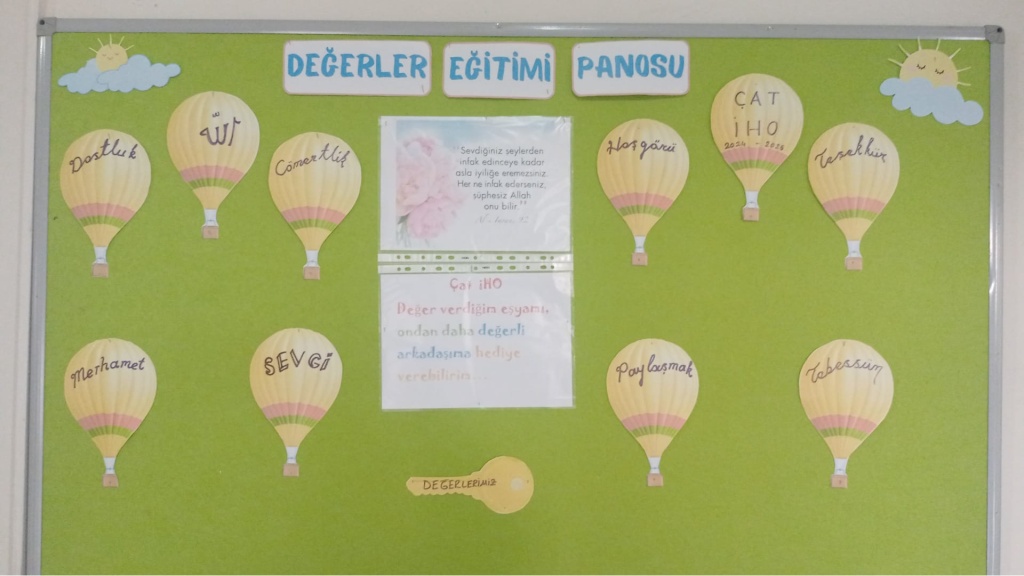 DEĞERLER EĞİTİMİ PANOSU
Dostluk
الله
Cömertlik
"Sevdiğiniz şeylerden
infak edinceye kadar
asla iyiliğe eremezsiniz.
Her ne infak ederseniz,
şüphesiz Allah
onu bilir."
Hoşgörü
ÇAT
İHO
2024 - 2025
Teşekkür
Çat İHO
Değer verdiğim eşyamı,
ondan daha değerli
arkadaşıma hediye
verebilirim...
Merhamet
SEVGİ
Paylaşmak
Tebessüm
DEĞERLERİMİZ